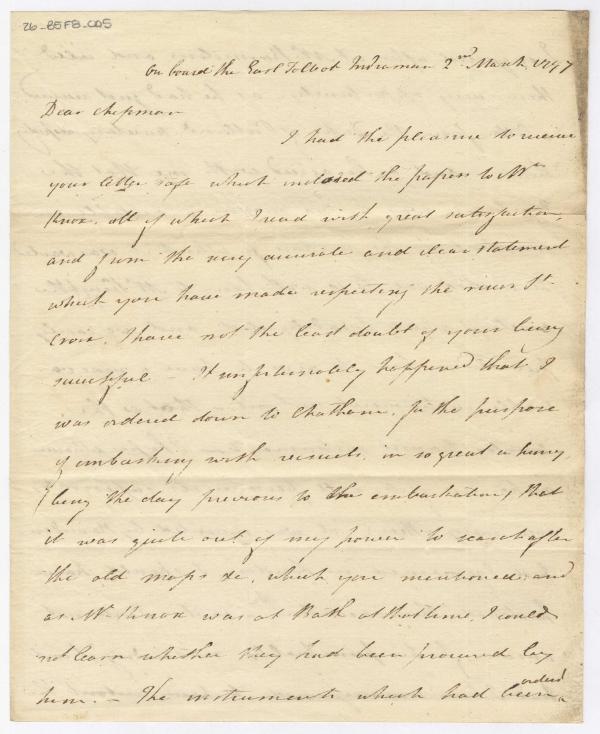 26-85F8-005
On board the Earl Talbot Indiaman 2nd March 1797
Dear Chipman
I had the pleasure to receive
your letter safe which inclosed the papers to Mr
Knox, all of which I read with great satisfaction,
and from the very accurate and clear statement
which you have made respecting the river St
Croix, I have not the least doubt of your being
successful – It unfortunately happened that I
was ordered down to Chatham, for the purpose
of embarking with recruits in so great a hurry
(being the day previous to the embarkation) that
it was quite out of my power to search after
the old maps &c. which you mentioned, and
as Mr Knox was at Bath at that time, I could
not learn whether they had been procured by
him. – The instruments which had been ordered